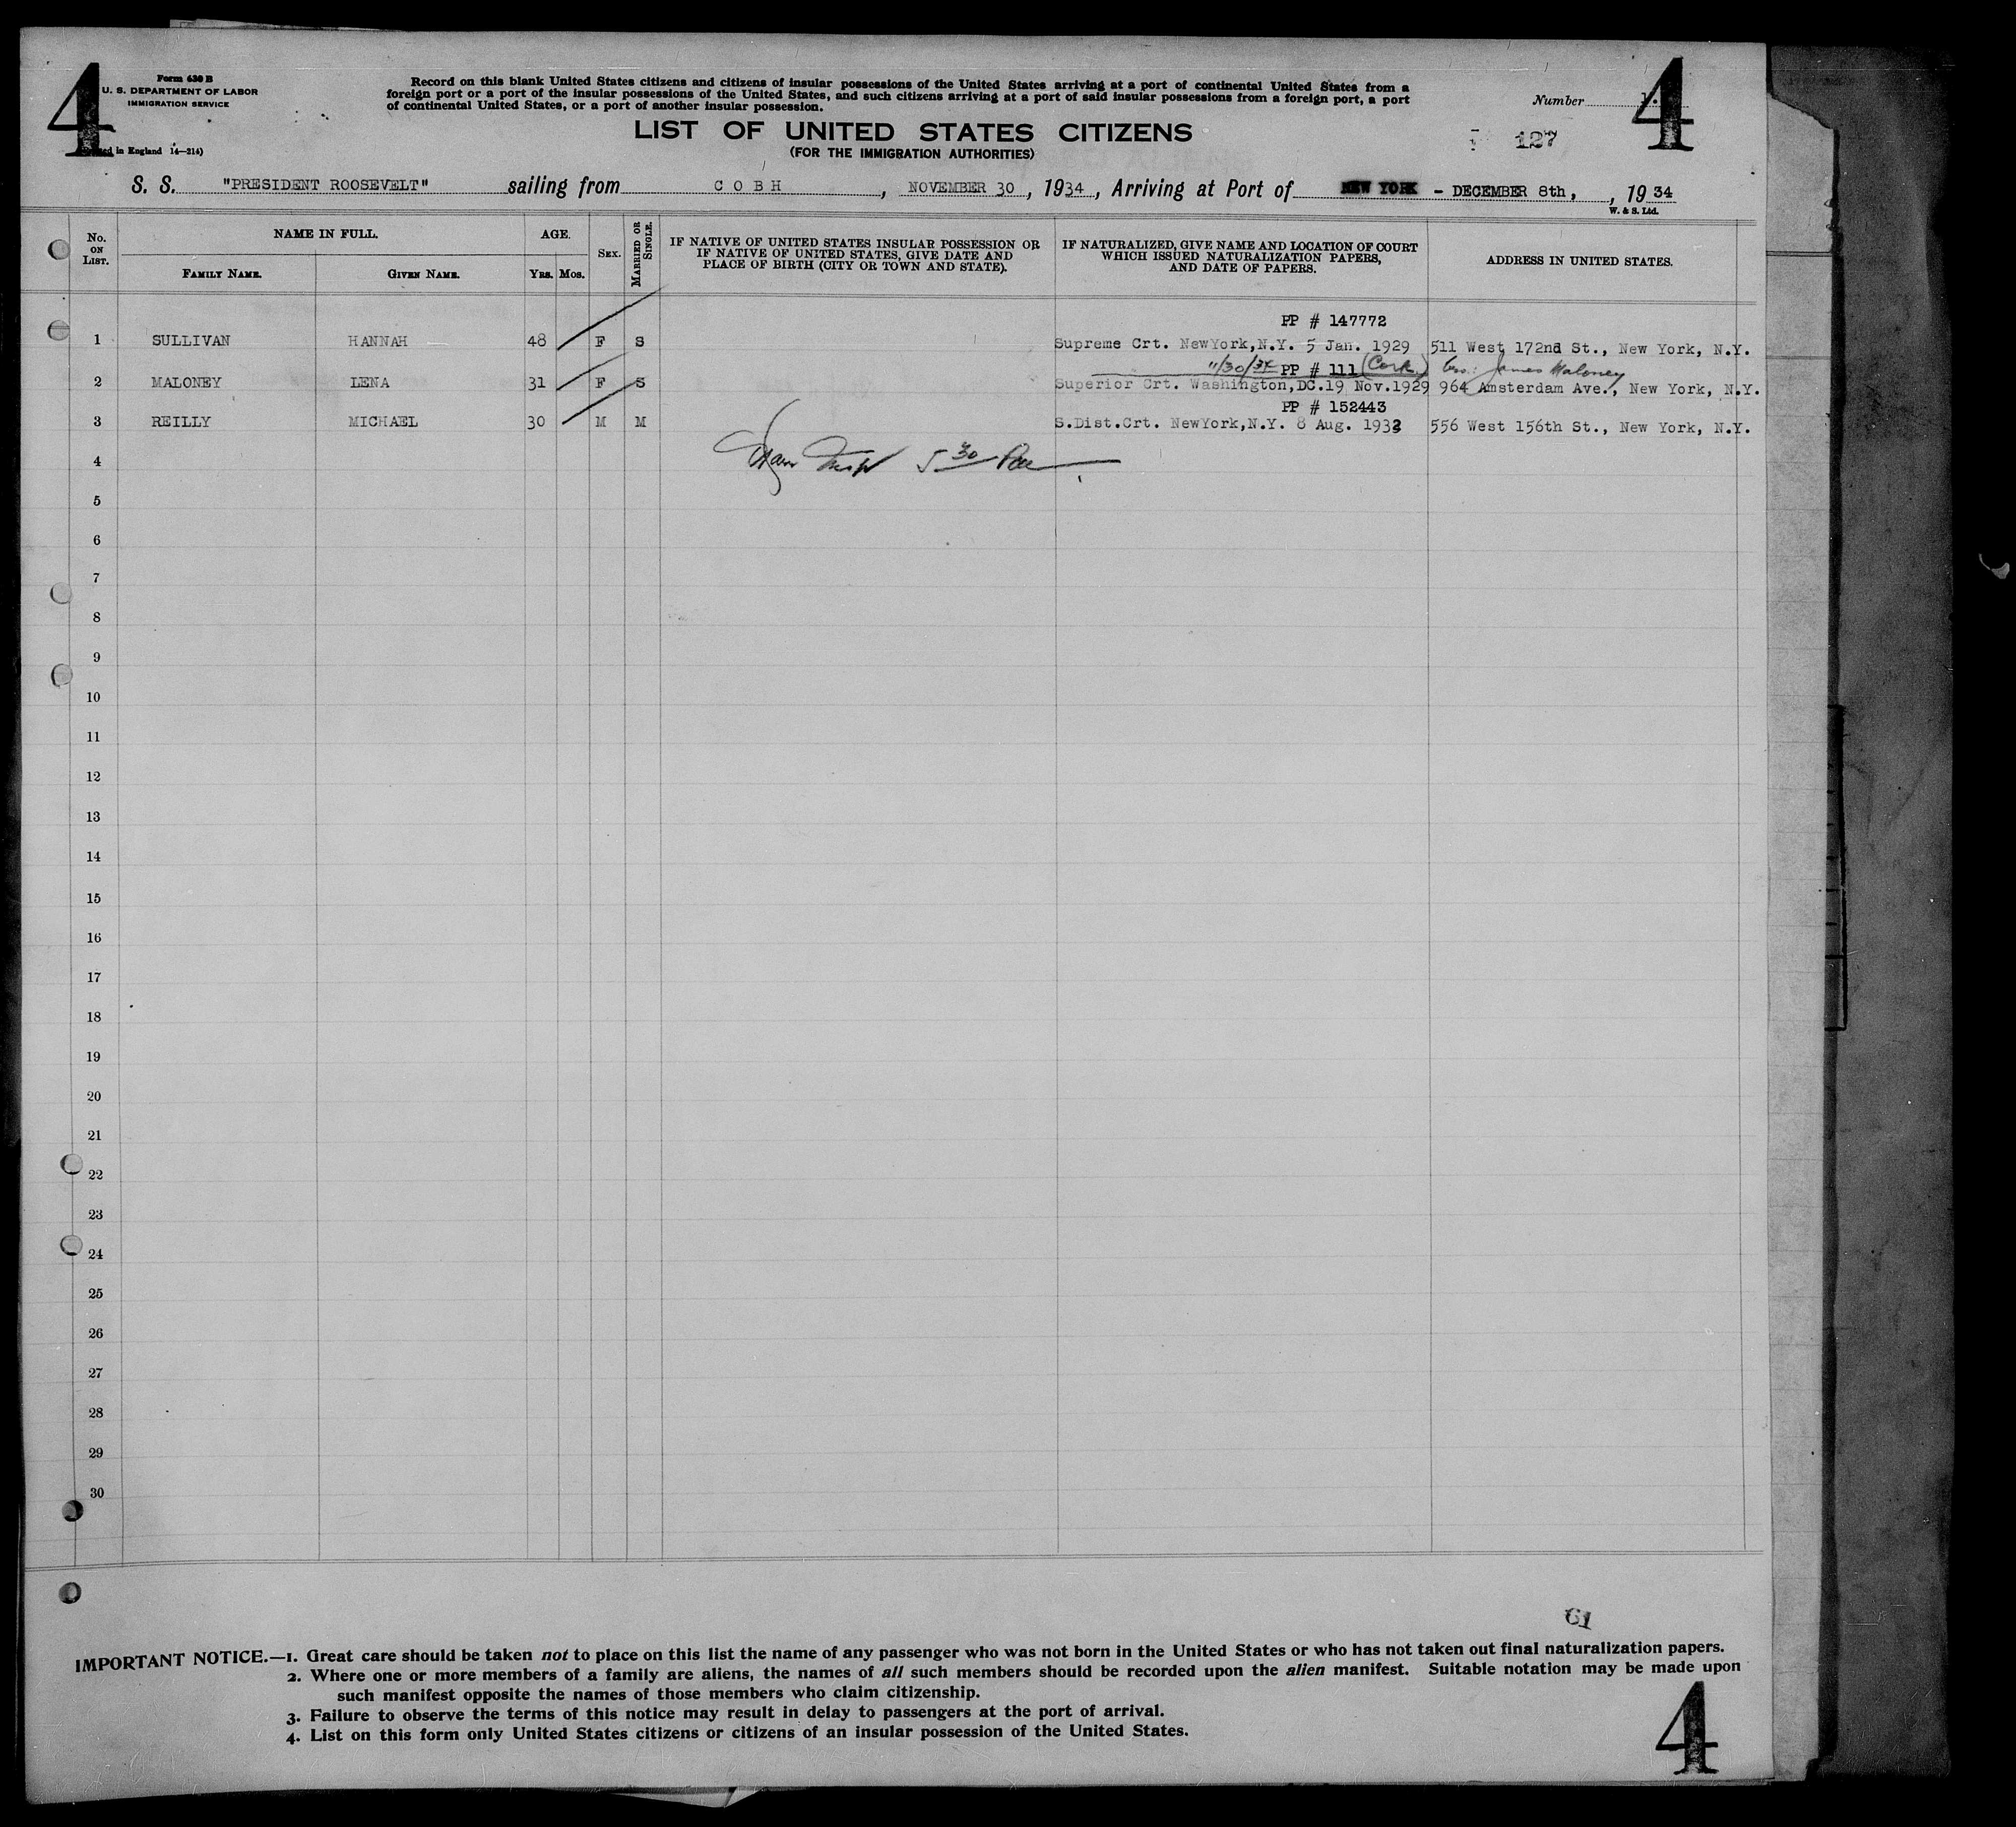 4
4
Form 630 B
U. S. DEPARTMENT OF LABOR
IMMIGRATION SERVICE
in England 14—214)
Record on this blank United States citizens and citizens of insular possessions of the United States arriving at a port of continental United States from a
foreign port or a port of the insular possessions of the United States, and such citizens arriving at a port of said insular possessions from a foreign port, a port
of continental United States, or a port of another insular possession.
Number
LIST OF UNITED STATES CITIZENS
(FOR THE IMMIGRATION AUTHORITIES)
127
S. S. "PRESIDENT ROOSEVELT" sailing from COBH, NOVEMBER 30, 1934, Arriving at Port of NEW YORK - DECEMBER 8th, , 1934
W. & S. Ltd.
No. ON LIST.
NAME IN FULL.
FAMILY NAME. GIVEN NAME.
AGE.
YRS. MOS.
SEX.
MARRIED OR SINGLE.
IF NATIVE OF UNITED STATES INSULAR POSSESSION OR
IF NATIVE OF UNITED STATES, GIVE DATE AND
PLACE OF BIRTH (CITY OR TOWN AND STATE).
IF NATURALIZED, GIVE NAME AND LOCATION OF COURT
WHICH ISSUED NATURALIZATION PAPERS,
AND DATE OF PAPERS.
ADDRESS IN UNITED STATES.
PP # 147772
1 SULLIVAN HANNAH 48 F S Supreme Crt. NewYork,N.Y. 5 Jan. 1929 511 West 172nd St., New York, N.Y.
11/30/34 PP # 111 (Cork) James Maloney
2 MALONEY LENA 31 F S Superior Crt. Washington,DC.19 Nov.1929 964 Amsterdam Ave., New York, N.Y.
PP # 152443
3 REILLY MICHAEL 30 M M S.Dist.Crt. NewYork,N.Y. 8 Aug. 1933 556 West 156th St., New York, N.Y.
4 5 30
5
6
7
8
9
10
11
12
13
14
15
16
17
18
19
20
21
22
23
24
25
26
27
28
29
30
61
IMPORTANT NOTICE.—1. Great care should be taken not to place on this list the name of any passenger who was not born in the United States or who has not taken out final naturalization papers.
2. Where one or more members of a family are aliens, the names of all such members should be recorded upon the alien manifest. Suitable notation may be made upon
such manifest opposite the names of those members who claim citizenship.
3. Failure to observe the terms of this notice may result in delay to passengers at the port of arrival.
4. List on this form only United States citizens or citizens of an insular possession of the United States.
4